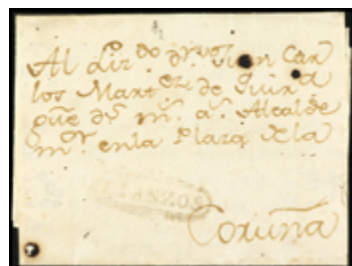 Al Liz.do Dn Juan Car
los Mart.ez de
que ds. m.s a.s Alcalde
m.or en la Plaza de la
Coruña